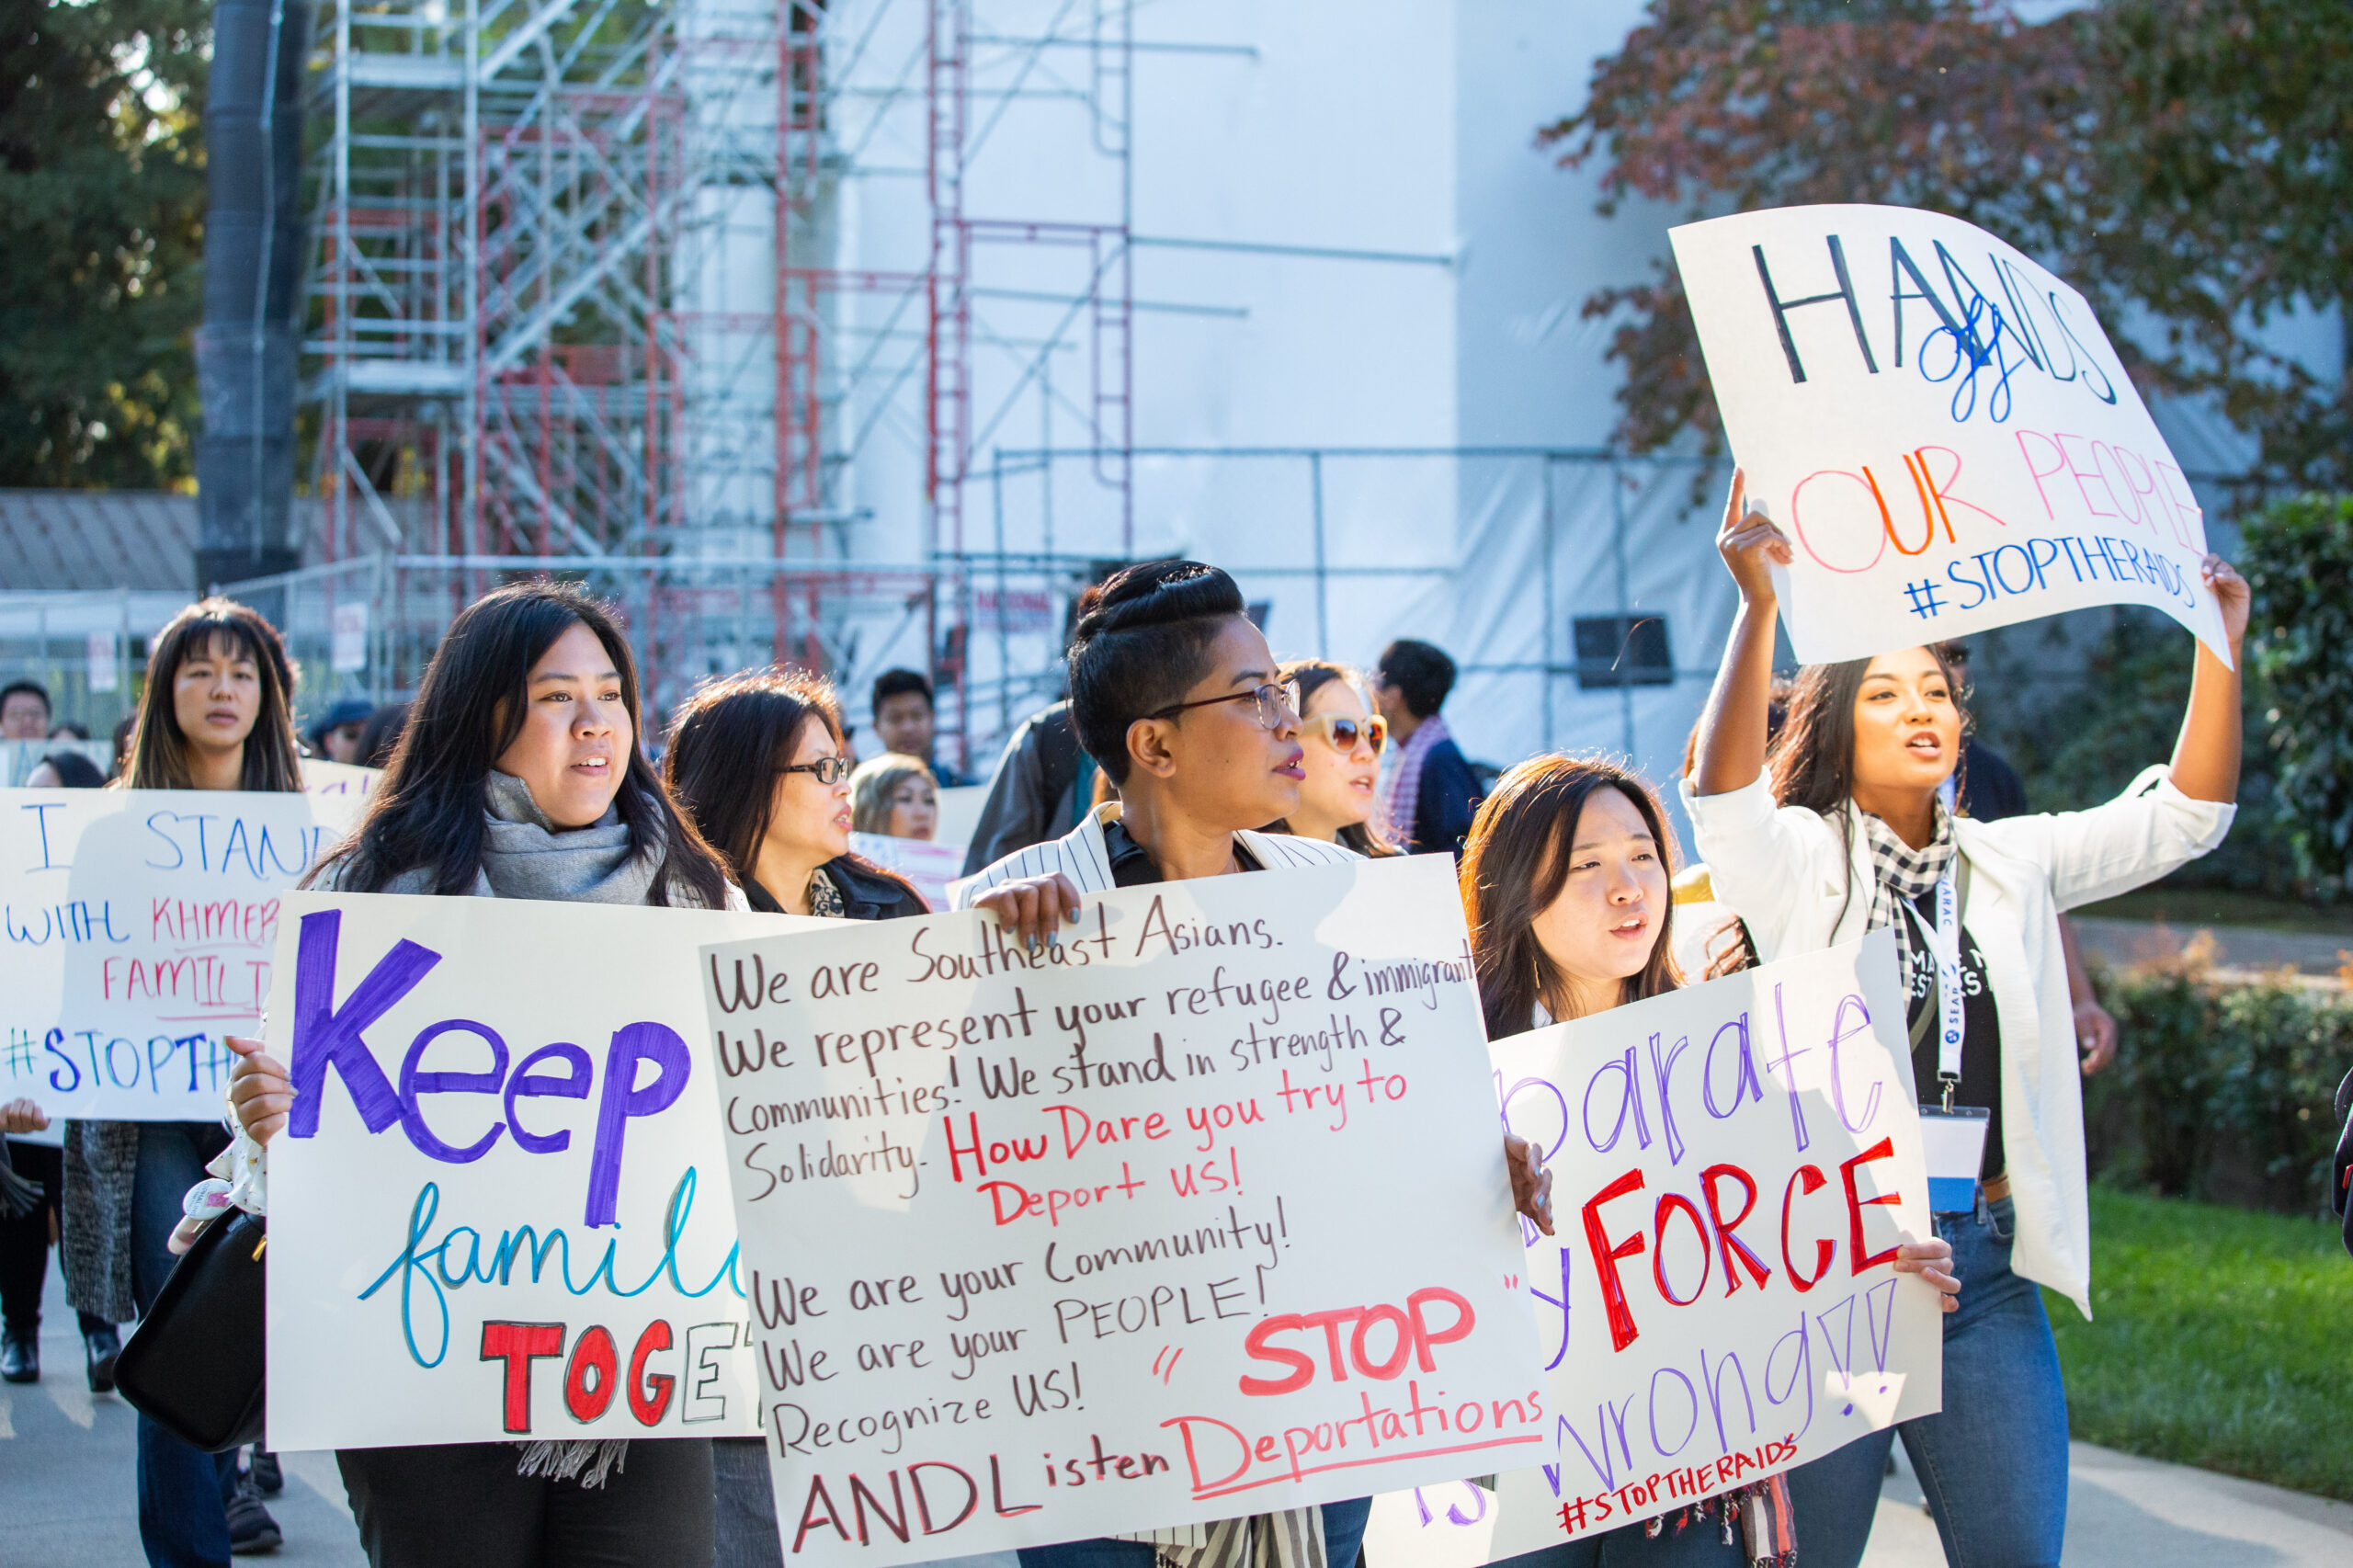 I STAND
WITH KHMER
FAMILI
#STOPTH
Keep
famili
TOGET
We are Southeast Asians.
We represent your refugee & immigrant
Communities! We stand in strength &
Solidarity. How Dare you try to
Deport us!
We are your Community!
We are your PEOPLE!
Recognize US!
AND Listen " STOP "
Deportations
parate
y FORCE
is wrong!!
#STOPTHERAIDS
HANDS
off
OUR PEOPLE
#STOPTHERAIDS